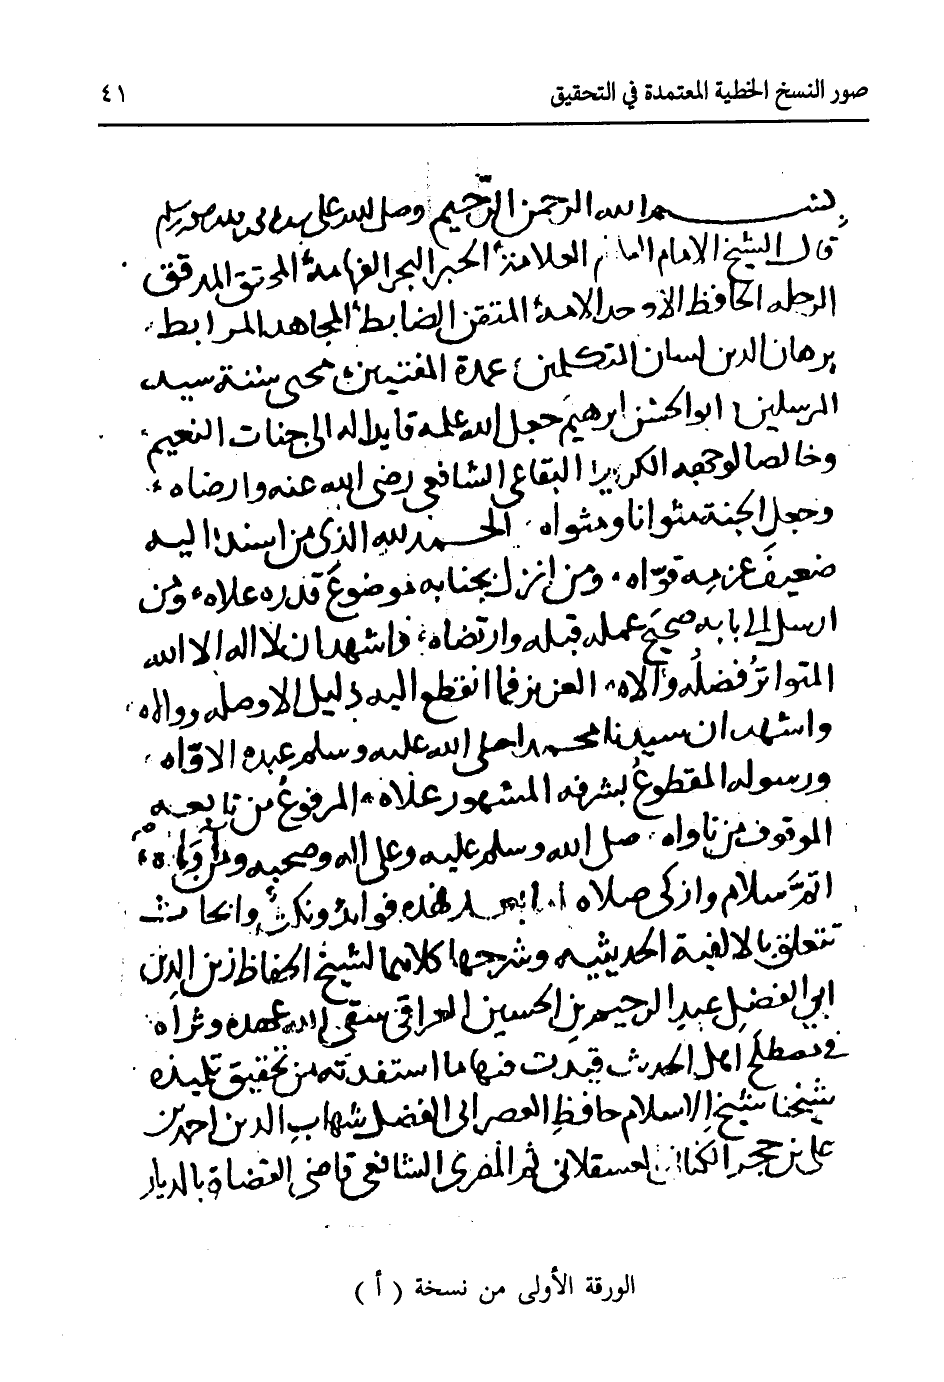 صور النسخ الخطية المعتمدة في التحقيق ٤١
بسم الله الرحمن الرحيم وصلى الله على سيدنا محمد
قال الشيخ الامام العلامة الحبر البحر الفهامة المحقق المدقق
الرحله الحافظ الاوحد الامة المتقن الضابط المجاهد المرابط
برهان الدين لسان المتكلمين عمدة المفتيين محيي سنة سيد
المرسلين ابو الحسن ابرهيم جعل الله علمه قايدا له الى جنات النعيم
وخالصا لوجهه الكريم البقاعي الشافعي رضي الله عنه وارضاه
وجعل الجنة مثوانا ومثواه الحمد لله الذي من اسند اليه
ضعيف عزمه قواه ومن انزل بجنابه موضوع قدره علاه ومن
ارسل الى بابه صحيح عمله قبله وارتضاه فاشهد ان لا اله الا الله
المتواتر فضله وآلاه العزيز فما انقطع اليه ذليل الا وصله ووالاه
واشهد ان سيدنا محمدا صلى الله عليه وسلم عبده الاواه
ورسوله المقطوع بشرفه المشهور علاه المرفوع من تابعه
الموقوف من ناواه صلى الله وسلم عليه وعلى اله وصحبه ومن والاه
اتمّ سلام وازكى صلاه اما بعد فهذه فوايد ونكت وابحاث
تتعلق بالالفية الحديثيه وشرحها كلاهما لشيخ الحفاظ زين الدين
ابي الفضل عبد الرحيم بن الحسين العراقي سقى الله عهده وثراه
في مصطلح اهل الحديث قيدت فيها ما استفدته من تحقيق تلميذه
شيخنا شيخ الاسلام حافظ العصر ابي الفضل شهاب الدين احمد بن
علي بن حجر الكناني العسقلاني ثم المصري الشافعي قاضي القضاة بالديار
الورقة الأولى من نسخة ( أ )